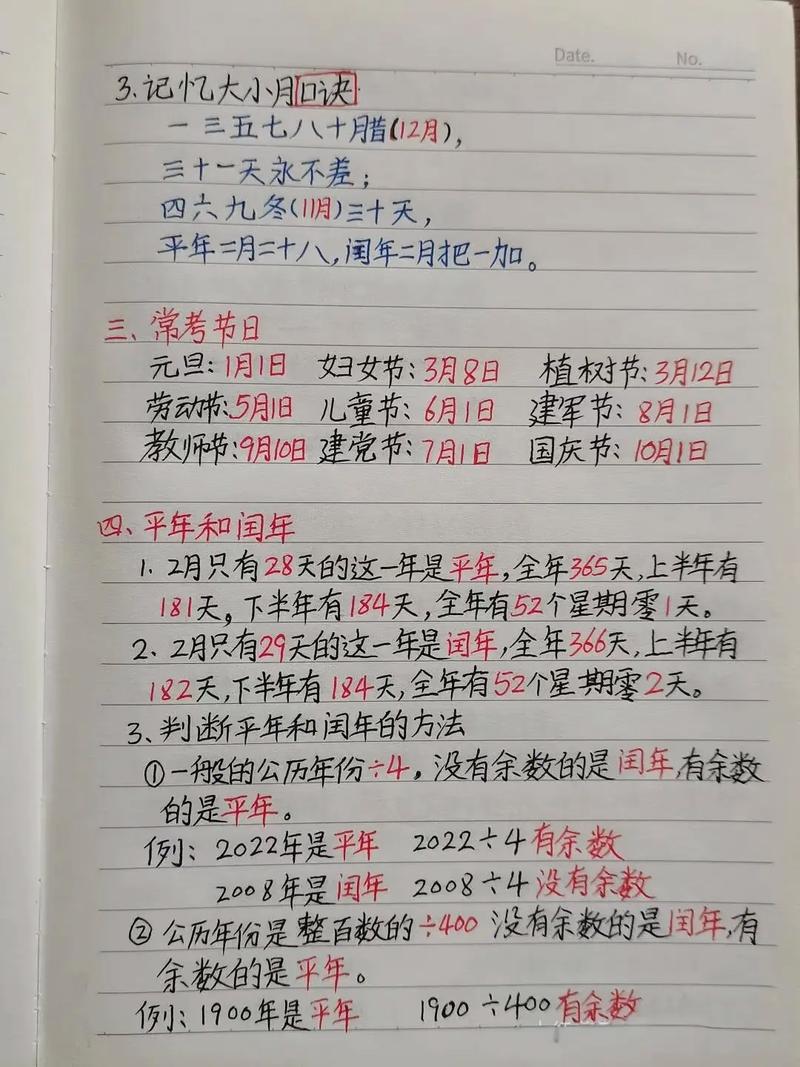 Date. No.
3.记忆大小月口诀
一三五七八十月腊(12月),
三十一天永不差;
四六九冬(11月)三十天,
平年二月二十八,闰年二月把一加。
三、常考节日
元旦:1月1日 妇女节:3月8日 植树节:3月12日
劳动节:5月1日 儿童节:6月1日 建军节:8月1日
教师节:9月10日 建党节:7月1日 国庆节:10月1日
四、平年和闰年
1. 2月只有28天的这一年是平年,全年365天,上半年有
181天,下半年有184天,全年有52个星期零1天。
2、2月只有29天的这一年是闰年,全年366天,上半年有
182天,下半年有184天,全年有52个星期零2天。
3、判断平年和闰年的方法
①一般的公历年份÷4,没有余数的是闰年,有余数
的是平年。
例:2022年是平年 2022÷4有余数
2008年是闰年 2008÷4没有余数
②公历年份是整百数的÷400 没有余数的是闰年,有
余数的是平年。
例:1900年是平年 1900÷400有余数